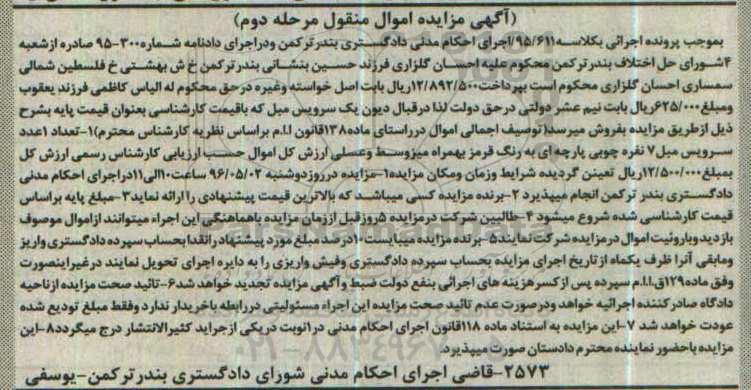 (آگهی مزایده اموال منقول مرحله دوم)
بموجب پرونده اجرائی بکلاسه ۹۵/۶۱۱/اجرای احکام مدنی دادگستری بندرترکمن ودراجرای دادنامه شماره۳۰۰-۹۵ صادره ازشعبه
۴شورای حل اختلاف بندرترکمن محکوم علیه احسان گلزاری فرزند حسین بنشانی بندرترکمن خ ش بهشتی خ فلسطین شمالی
سمساری احسان گلزاری محکوم است بپرداخت۱۲/۸۹۲/۵۰۰ریال بابت اصل خواسته وغیره درحق محکوم له الیاس کاظمی فرزند یعقوب
ومبلغ۶۲۵/۰۰۰ریال بابت نیم عشر دولتی درحق دولت لذا درقبال دیون یک سرویس مبل که باقیمت کارشناسی بعنوان قیمت پایه بشرح
ذیل ازطریق مزایده بفروش میرسد(توصیف اجمالی اموال درراستای ماده۱۳۸قانون ا.ا.م براساس نظریه کارشناس محترم)۱-تعداد ۱عدد
سرویس مبل۷ نفره چوبی پارچه ای به رنگ قرمز بهمراه میزوسط وعسلی ارزش کل اموال حسب ارزیابی کارشناس رسمی ارزش کل
بمبلغ۱۲/۵۰۰/۰۰۰ریال تعیین گردیده شرایط وزمان ومکان مزایده۱-مزایده درروزدوشنبه ۹۶/۰۵/۰۲ ساعت۱۰الی۱۱دراجرای احکام مدنی
دادگستری بندر ترکمن انجام میپذیرد ۲-برنده مزایده کسی میباشد که بالاترین قیمت پیشنهادی را ارائه نماید۳-مبلغ پایه براساس
قیمت کارشناسی شده شروع میشود ۴-طالبین شرکت درمزایده ۵روزقبل اززمان مزایده باهماهنگی این اجراء میتوانند ازاموال موصوف
بازدیدوباروئیت اموال درمزایده شرکت نمایند۵-برنده مزایده میبایست۱۰درصد مبلغ مورد پیشنهاد رانقدابحساب سپرده دادگستری واریز
ومابقی آنرا ظرف یکماه ازتاریخ اجرای مزایده بحساب سپرده دادگستری وفیش واریزی را به دایره اجرای تحویل نمایند درغیراینصورت
وفق ماده۱۲۹ق.ا.ا.م سپرده پس از کسرهزینه های اجرائی بنفع دولت ضبط وآگهی مزایده تجدید خواهد شد۶-تائید صحت مزایده ازناحیه
دادگاه صادرکننده اجرائیه خواهد ودرصورت عدم تائید صحت مزایده این اجراء مسئولیتی دررابطه باخریدار ندارد وفقط مبلغ تودیع شده
عودت خواهد شد ۷-این مزایده به استناد ماده ۱۱۸قانون اجرای احکام مدنی در۱نوبت دریکی ازجراید کثیرالانتشار درج میگردد۸-این
مزایده باحضور نماینده محترم دادستان صورت میپذیرد.
۲۵۷۳-قاضی اجرای احکام مدنی شورای دادگستری بندرترکمن-یوسفی
ParsNamadData
۰۲۱-۸۸۳۴۹۶۷۰